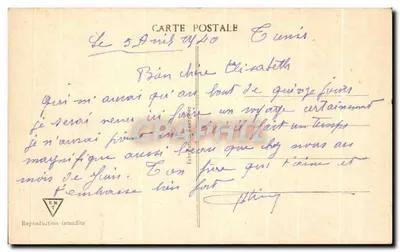 CARTE POSTALE
Le 5 Avril 1940 Tunis.
Bien chère Elisabeth
Qui m'aurai qu'au bout de quinze jours
je serai venu ici faire un voyage certainement
je n'aurai fait un temps
magnifique aussi beau que chez nous au
mois de Juin. Ton frère qui t'aime et
t'embrasse bien fort
Reproduction interdite